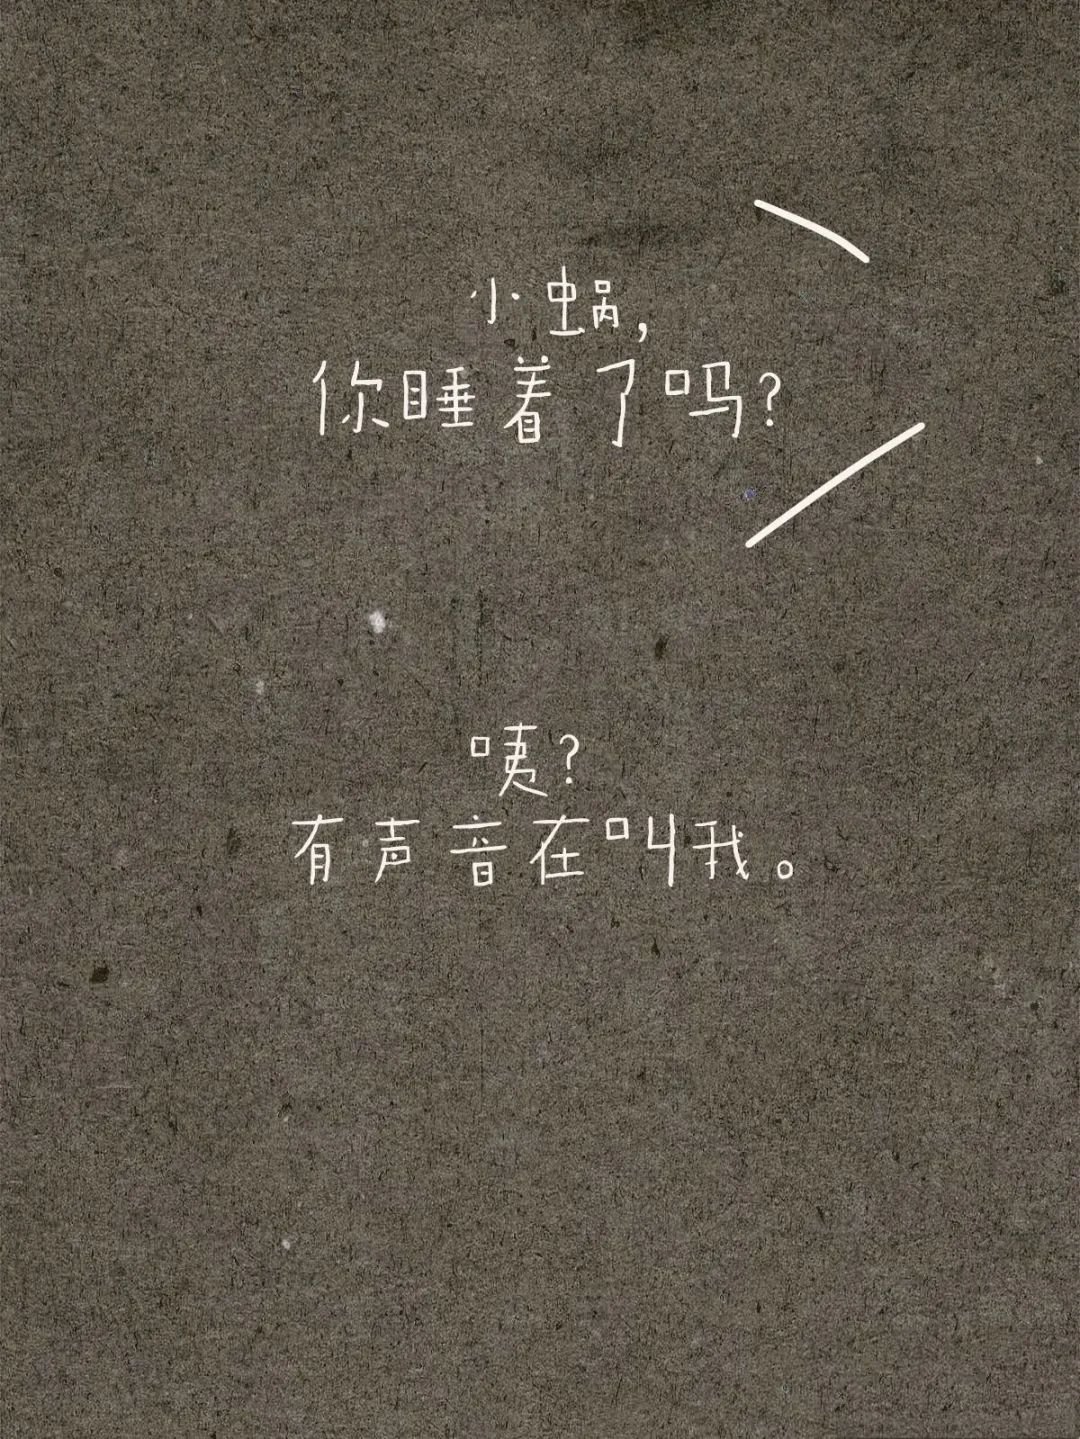 小蜗，
你睡着了吗？
咦？
有声音在叫我。